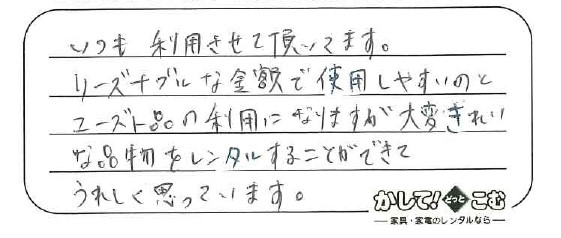 いつも 利用させて頂いてます。
リーズナブルな金額で使用しやすいのと
ユーズド品の利用になりますが大変きれい
な品物をレンタルすることができて
うれしく思っています。
かして!どっとこむ
家具・家電のレンタルなら